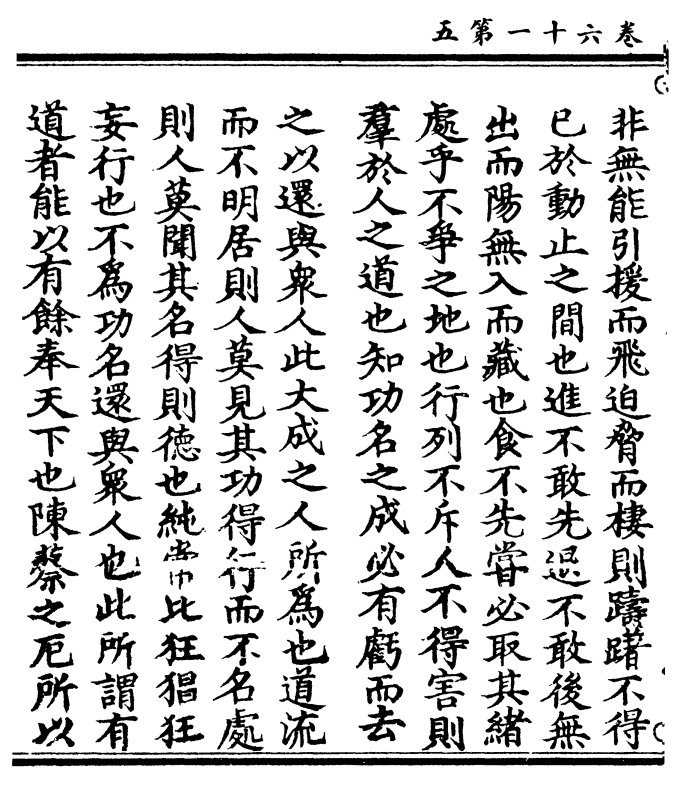 卷六十一第五
非無能引援而飛迫脅而棲則躊躇不得
已於動止之間也進不敢先退不敢後無
出而陽無入而藏也食不先嘗必取其緒
處乎不爭之地也行列不斥人不得害則
羣於人之道也知功名之成必有虧而去
之以還與衆人此大成之人所為也道流
而不明居則人莫見其功得行而不名處
則人莫聞其名得則德也純常比狂猖狂
妄行也不為功名還與衆人也此所謂有
道者能以有餘奉天下也陳蔡之厄所以